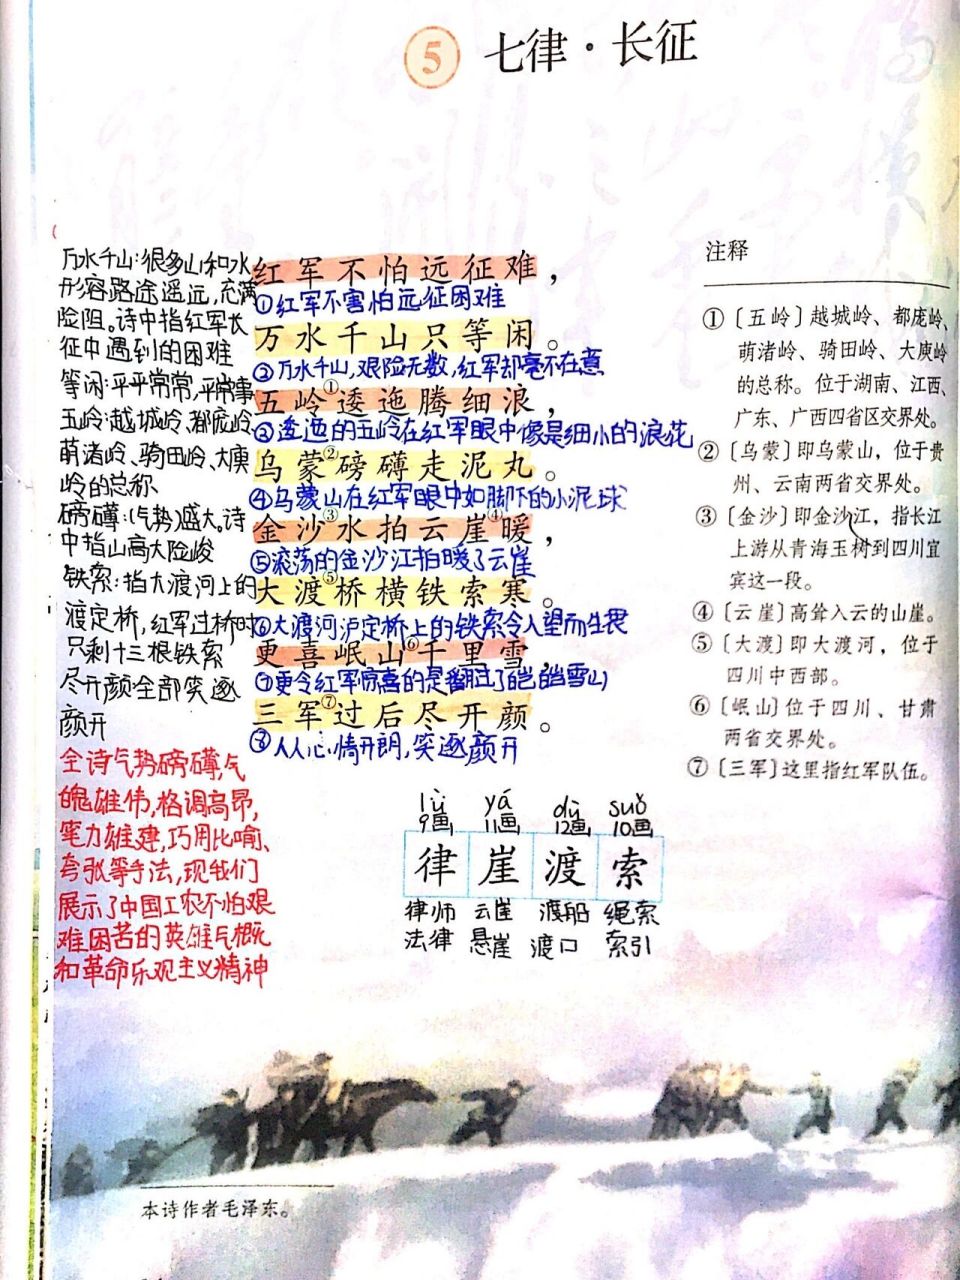 5 七律·长征
红军不怕远征难，
①红军不害怕远征困难
万水千山只等闲。
②万水千山,艰险无数,红军却毫不在意
五岭①逶迤腾细浪，
③逶迤的五岭在红军眼中像是细小的浪花
乌蒙②磅礴走泥丸。
④乌蒙山在红军眼中如脚下的小泥球
金沙③水拍云崖④暖，
⑤滚荡的金沙江拍暖了云崖
大渡⑤桥横铁索寒。
⑥大渡河泸定桥上的铁索令人望而生畏
更喜岷山⑥千里雪，
⑦更令红军惊喜的是翻过了皑皑雪山
三军⑦过后尽开颜。
⑧人人心情开朗,笑逐颜开
万水千山:很多山和水
形容路途遥远,充满
险阻。诗中指红军长
征中遇到的困难
等闲:平平常常,平常事
五岭:越城岭、都庞岭、
萌渚岭、骑田岭、大庾
岭的总称
磅礴:(气势)盛大。诗
中指山高大险峻
铁索:指大渡河上的
渡定桥,红军过桥时
只剩十三根铁索
尽开颜:全部笑逐
颜开
全诗气势磅礴,气
魄雄伟,格调高昂,
笔力雄建,巧用比喻、
夸张等手法,现我们
展示了中国工农不怕艰
难困苦的英雄气概
和革命乐观主义精神
注释
①〔五岭〕越城岭、都庞岭、
萌渚岭、骑田岭、大庾岭
的总称。位于湖南、江西、
广东、广西四省区交界处。
②〔乌蒙〕即乌蒙山，位于贵
州、云南两省交界处。
③〔金沙〕即金沙江，指长江
上游从青海玉树到四川宜
宾这一段。
④〔云崖〕高耸入云的山崖。
⑤〔大渡〕即大渡河，位于
四川中西部。
⑥〔岷山〕位于四川、甘肃
两省交界处。
⑦〔三军〕这里指红军队伍。
lǜ yá dù suǒ
9画 11画 12画 10画
律 崖 渡 索
律师 云崖 渡船 绳索
法律 悬崖 渡口 索引
本诗作者毛泽东。